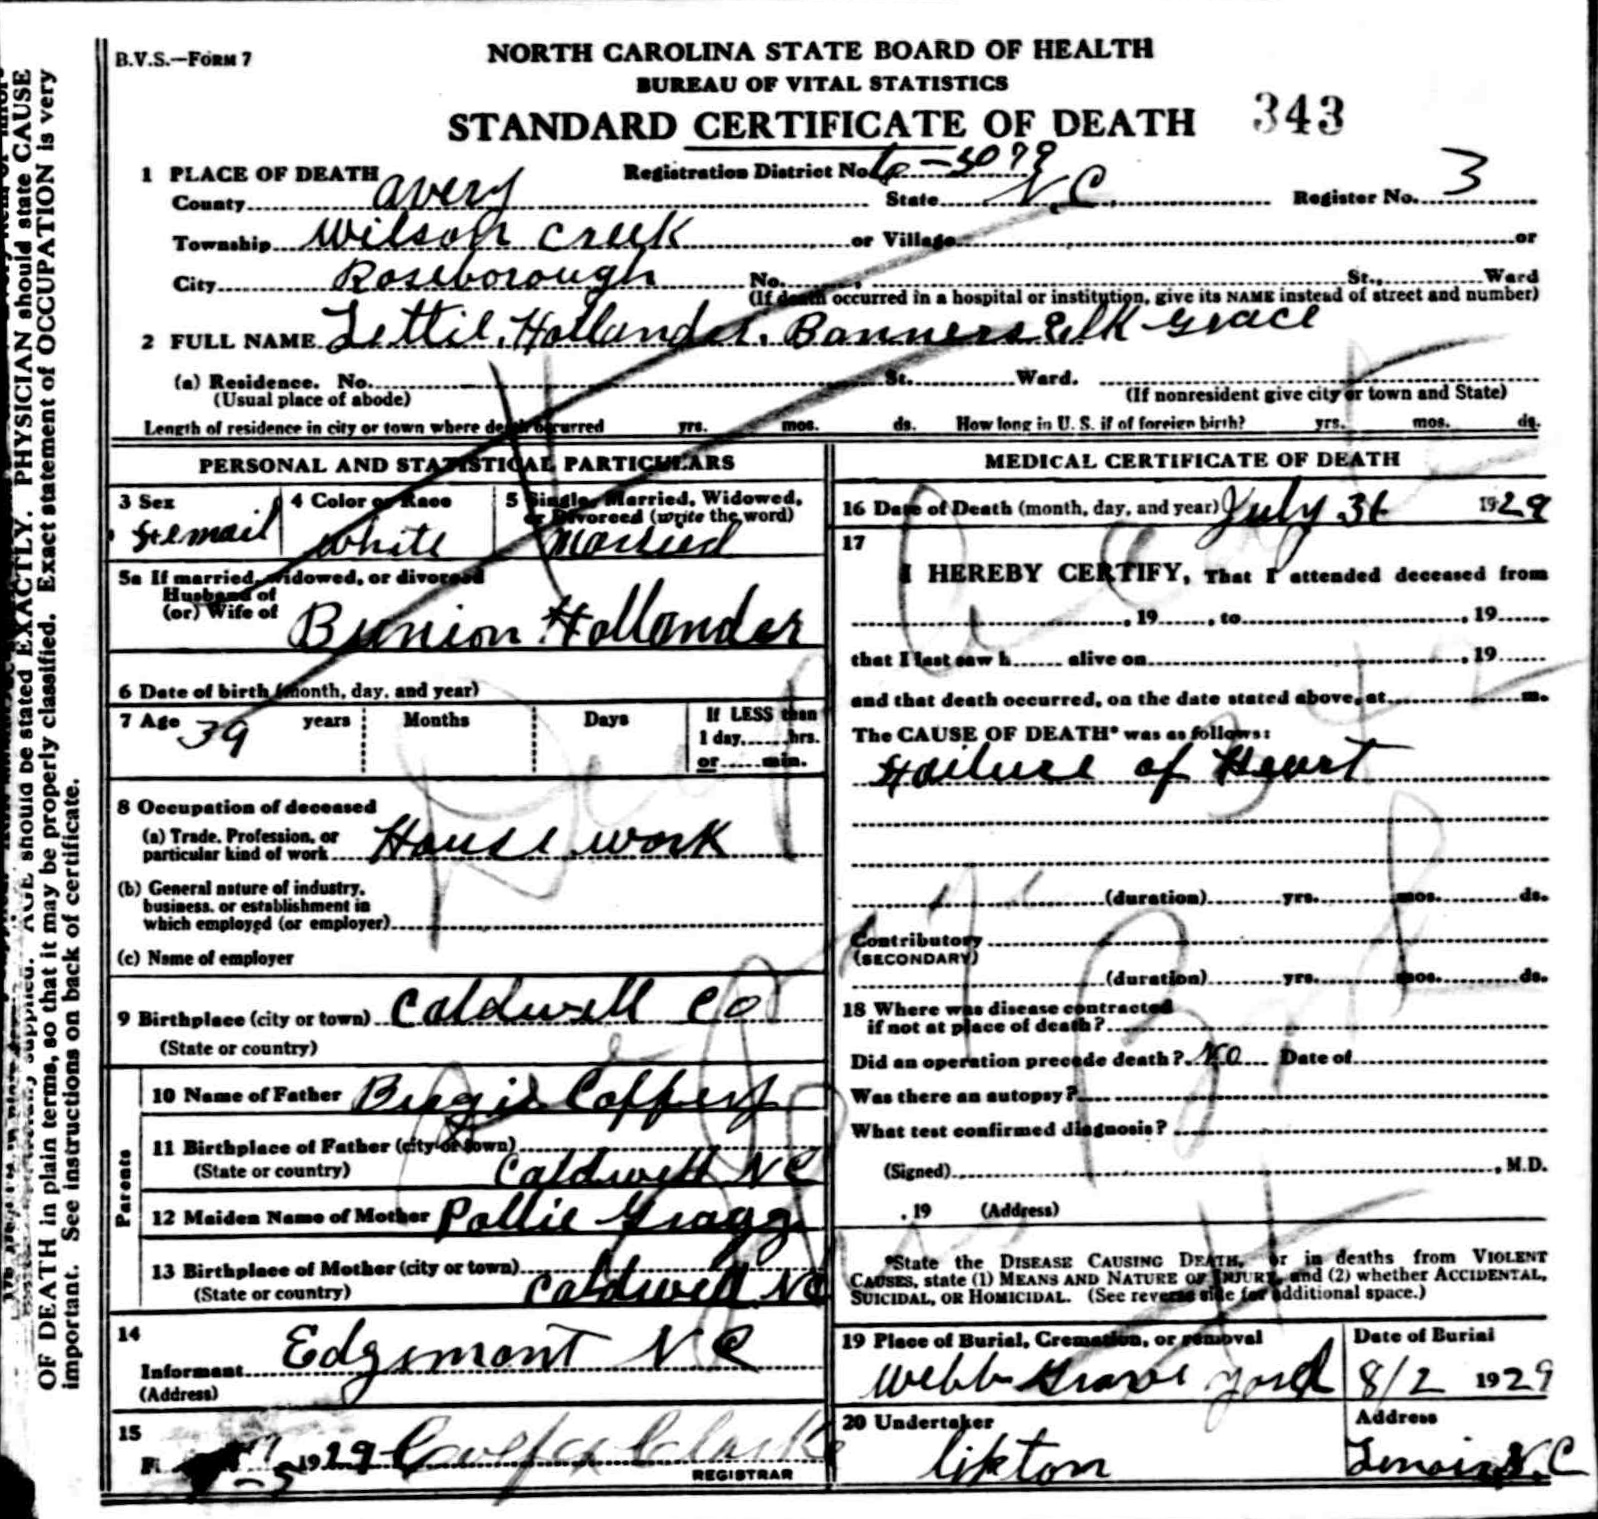 B.V.S.—FORM 7
NORTH CAROLINA STATE BOARD OF HEALTH
BUREAU OF VITAL STATISTICS
STANDARD CERTIFICATE OF DEATH 343
1 PLACE OF DEATH Registration District No. 6-5079
County Avery State N.C. Register No. 3
Township Wilson Creek or Village or
City Roseborough No. St., Ward
(If death occurred in a hospital or institution, give its NAME instead of street and number)
2 FULL NAME Lettie Hollander. Banners Elk Grace
(a) Residence. No. St. Ward.
(Usual place of abode) (If nonresident give city or town and State)
Length of residence in city or town where death occurred yrs. mos. ds. How long in U. S. if of foreign birth? yrs. mos. ds.
PERSONAL AND STATISTICAL PARTICULARS
3 Sex 4 Color or Race 5 Single, Married, Widowed,
or Divorced (write the word)
Femail white Married
5a If married, widowed, or divorced
Husband of
(or) Wife of Bunion Hollander
6 Date of birth (month, day, and year)
7 Age 39 years Months Days If LESS than
1 day, hrs.
or min.
8 Occupation of deceased
(a) Trade, Profession, or
particular kind of work House work
(b) General nature of industry,
business, or establishment in
which employed (or employer)
(c) Name of employer
9 Birthplace (city or town) Caldwell Co
(State or country)
Parents
10 Name of Father Coffey
11 Birthplace of Father (city or town)
(State or country) Caldwell N C
12 Maiden Name of Mother Pollie Gragg
13 Birthplace of Mother (city or town)
(State or country) Caldwell N C
14
Informant Edgemont N C
(Address)
15
1929 Clark
REGISTRAR
MEDICAL CERTIFICATE OF DEATH
16 Date of Death (month, day, and year) July 31 1929
17
I HEREBY CERTIFY, That I attended deceased from
, 19 , to , 19
that I last saw h alive on , 19
and that death occurred, on the date stated above, at m.
The CAUSE OF DEATH* was as follows:
Failure of Heart
(duration) yrs. mos. ds.
Contributory
(SECONDARY)
(duration) yrs. mos. ds.
18 Where was disease contracted
if not at place of death?
Did an operation precede death? No Date of
Was there an autopsy?
What test confirmed diagnosis?
(Signed) , M.D.
, 19 (Address)
*State the DISEASE CAUSING DEATH, or in deaths from VIOLENT
CAUSES, state (1) MEANS AND NATURE OF INJURY, and (2) whether ACCIDENTAL,
SUICIDAL, OR HOMICIDAL. (See reverse side for additional space.)
19 Place of Burial, Cremation, or removal Date of Burial
Webb Grave yard 8/2 1929
20 Undertaker Address
Lenoir, N.C
supplied. AGE should be stated EXACTLY. PHYSICIAN should state CAUSE
OF DEATH in plain terms, so that it may be properly classified. Exact statement of OCCUPATION is very
important. See instructions on back of certificate.